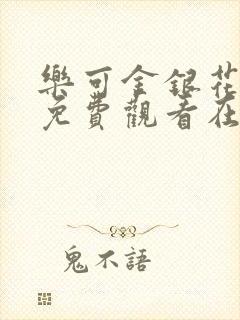 樂可金銀花
免費觀看在
鬼不語